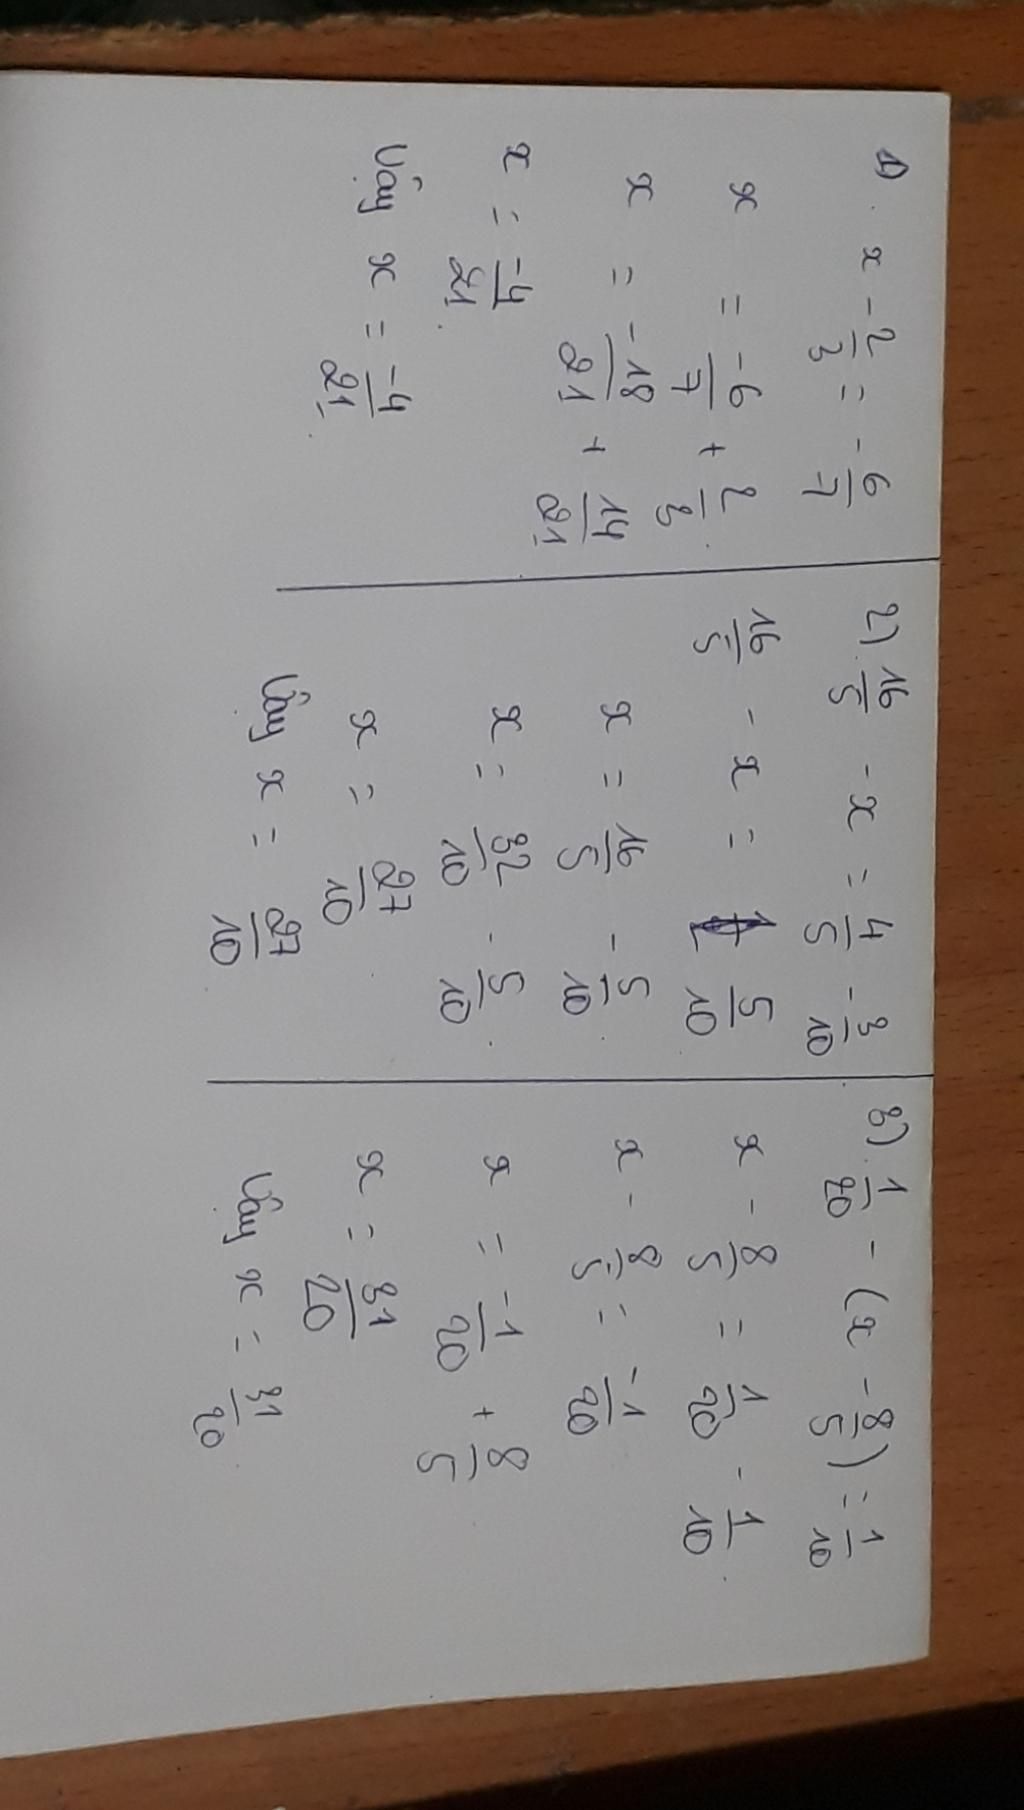 1) x - 2/3 = - 6/7
x = -6/7 + 2/3
x = -18/21 + 14/21
x = -4/21
Vậy x = -4/21
2) 16/5 - x = 4/5 - 3/10
16/5 - x = 5/10
x = 16/5 - 5/10
x = 32/10 - 5/10
x = 27/10
Vậy x = 27/10
3) 1/20 - (x - 8/5) = 1/10
x - 8/5 = 1/20 - 1/10
x - 8/5 = -1/20
x = -1/20 + 8/5
x = 31/20
Vậy x = 31/20